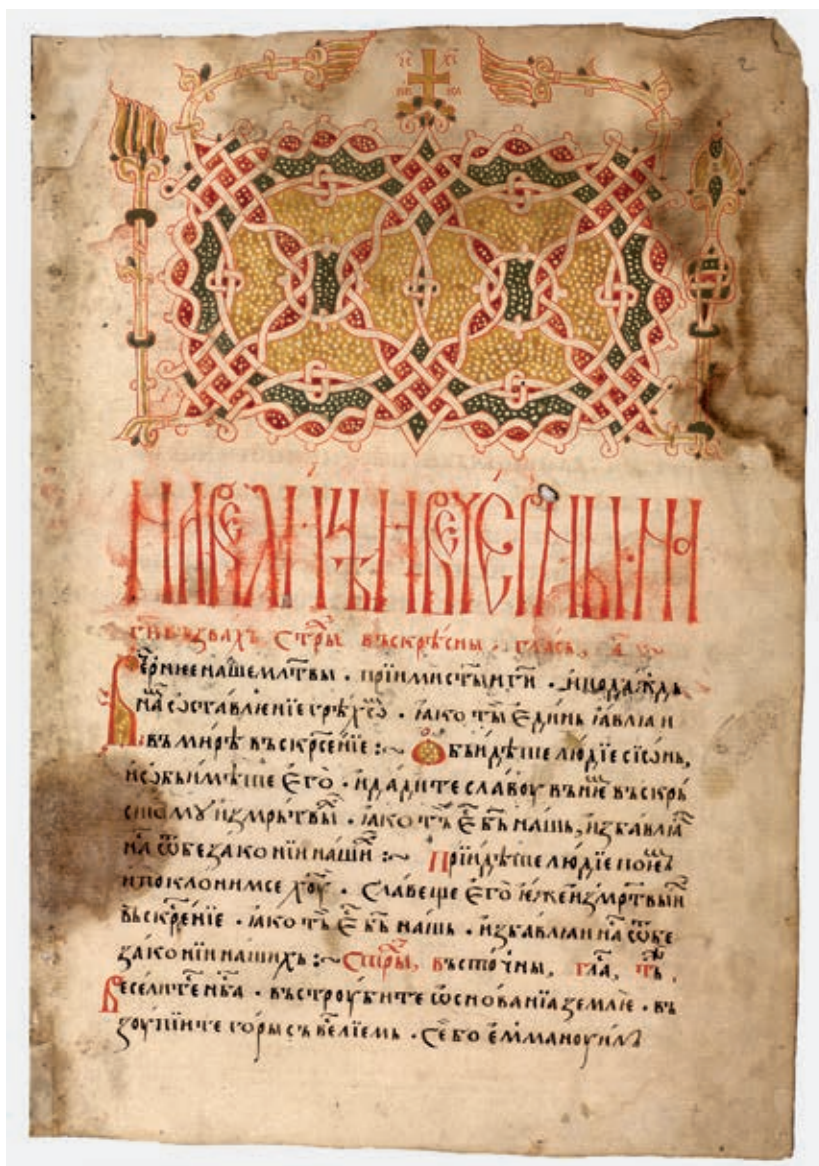 2
ІС ХС
НИ КА
г҃и възвахъ стр҃ы въскрⷭ҇ны, гласъ, а҃
Вечерніее наше мл҃твы · пріими ст҃ыи г҃и · и подаждь
намь ѡставлѥніе грѣхѡⷨ · ꙗко ты ѥдинь ꙗвлѥи
въ мирѣ въскрⷭ҇еніе :~ Обьидѣте людіе сіѡнь,
и ѡбьимѣте ѥго · и дадите славоу въ нѥⷨ въскрь
сшомꙋ из мрьтвыⷯ · ꙗко тъ ѥⷭ҇ б҃ь нашь, избавлѥи
наⷭ҇ ѿ безаконіи нашиⷯ :~ Пріидѣте людіе поѥⷨ
и поклонимсе хоⷭ҇ꙋ · славеще ѥго ѥже из мрⷮвыиⷯ
въскрⷭ҇еніе · ꙗко тъ ѥⷭ҇ б҃ь нашь · избавлѥи наⷭ҇ ѿ бе
законіи нашихь :~ Стр҃ы, въсточны, глаⷭ҇, тъⷤ.
Веселите нб҃са · въстроубите ѡснованіа землѥ · въ
зоупіите горы съ велѥмь · Се бо еммануиль